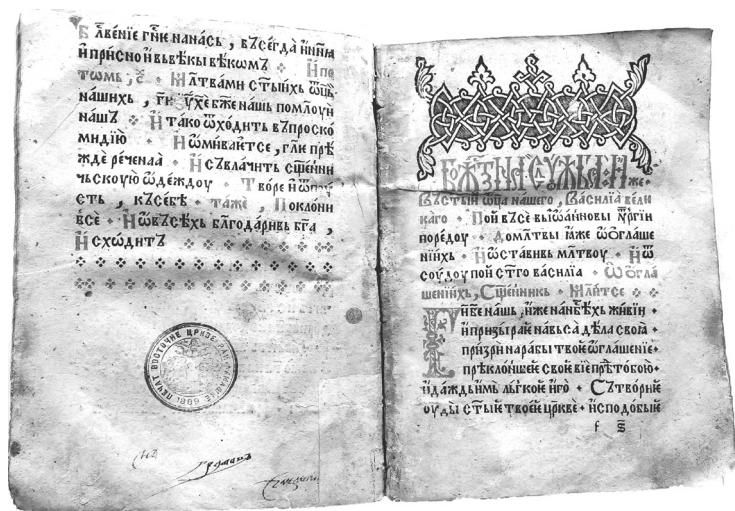 Блⷭ҇венїе гн҃е нанасъ , въсегда̀ и҆нн҃ꙗ
и҆ прⷭ҇но и҆ въвѣкы вѣкомъ ❖ И҆по
томь , Мл҃твами ст҃ыихь ѿц҃ь
нашихь , ги҃ і҆ꙋ҃ хе҃ бж҃е нашь помлоуи
нашъ ❖ И҆тако ѿходить въ проско
мидїю ❖ И҆ѡ҆мываетсе , гл҃и прѣ
ждѐ реченаа ❖ И҆съвлачить сщ҃енни
чьскоую ѡ҆деждоу ❖ Творе и҆ ѿпоу
сть , къ себѣ ❖ таже , Поклони
все ❖ И҆ ѡ҆въсѣхь бл҃годаривь бг҃а ,
И҆сходитъ
ПЕЧАТ ВОСТОЧНЕ ЦРКВЕ 1809
БОЖⷭ҇ТЪВНАꙖ СЛꙊЖБА ❖ И҆же
Въ ст҃ыи҆ ѿц҃а нашего , Василїа вели
каго ❖ Пои въсе выїѡ҆анновы лѷтꙋргїи
поредоу ❖ домл҃твы ꙗ҆же ѡ҆ ѡ҆глаше
нїихь ❖ И҆ ѡ҆ставивь мл҃твоу ❖ И҆ ѿ
соудоу пои ст҃го василїа ❖ Ѡ҆ ѡ҆гла
шенїихь , Сщ҃енникь ❖ Мл҃итсе ❖
Ги҃ бж҃е нашь , и҆же нанб҃сѣхь живїи ❖
И҆ призыра̀е навьса̀ дѣла своꙗ ❖
призри на рабы твое ѡ҆глашение ❖
прѣклоншее свое вїе прѣⷣ тобою ❖
и҆ даждь и҆мь льгкое и҆го ❖ Сътвори е
оуды ст҃ыє твоее цр҃кве ❖ и҆ сподобы е